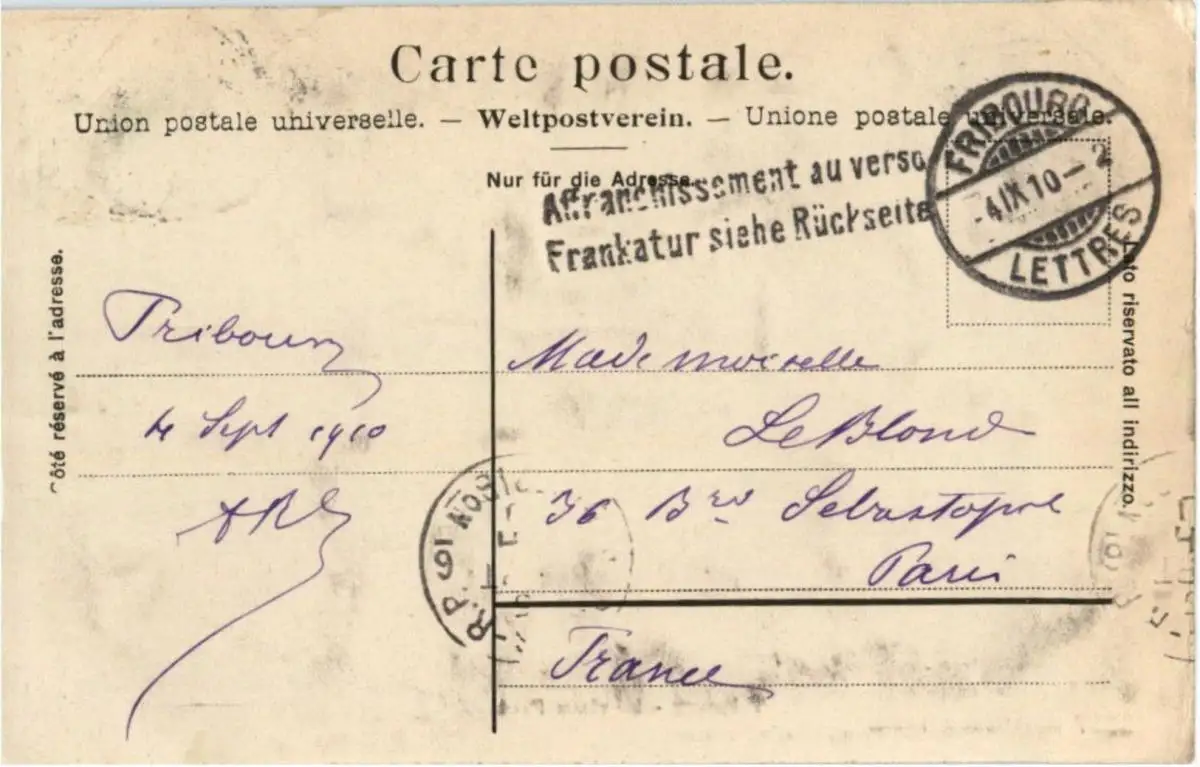 Carte postale.
Union postale universelle. — Weltpostverein. — Unione postale universale.
Nur für die Adresse.
Affranchissement au verso
Frankatur siehe Rückseite
FRIBOURG
-4.IX.10-2
LETTRES
Côté réservé à l'adresse.
Lato riservato all indirizzo.
Fribourg
4 Sept 1910
Mademoiselle
LeBlond
36 Bvd Sebastopol
Paris
France